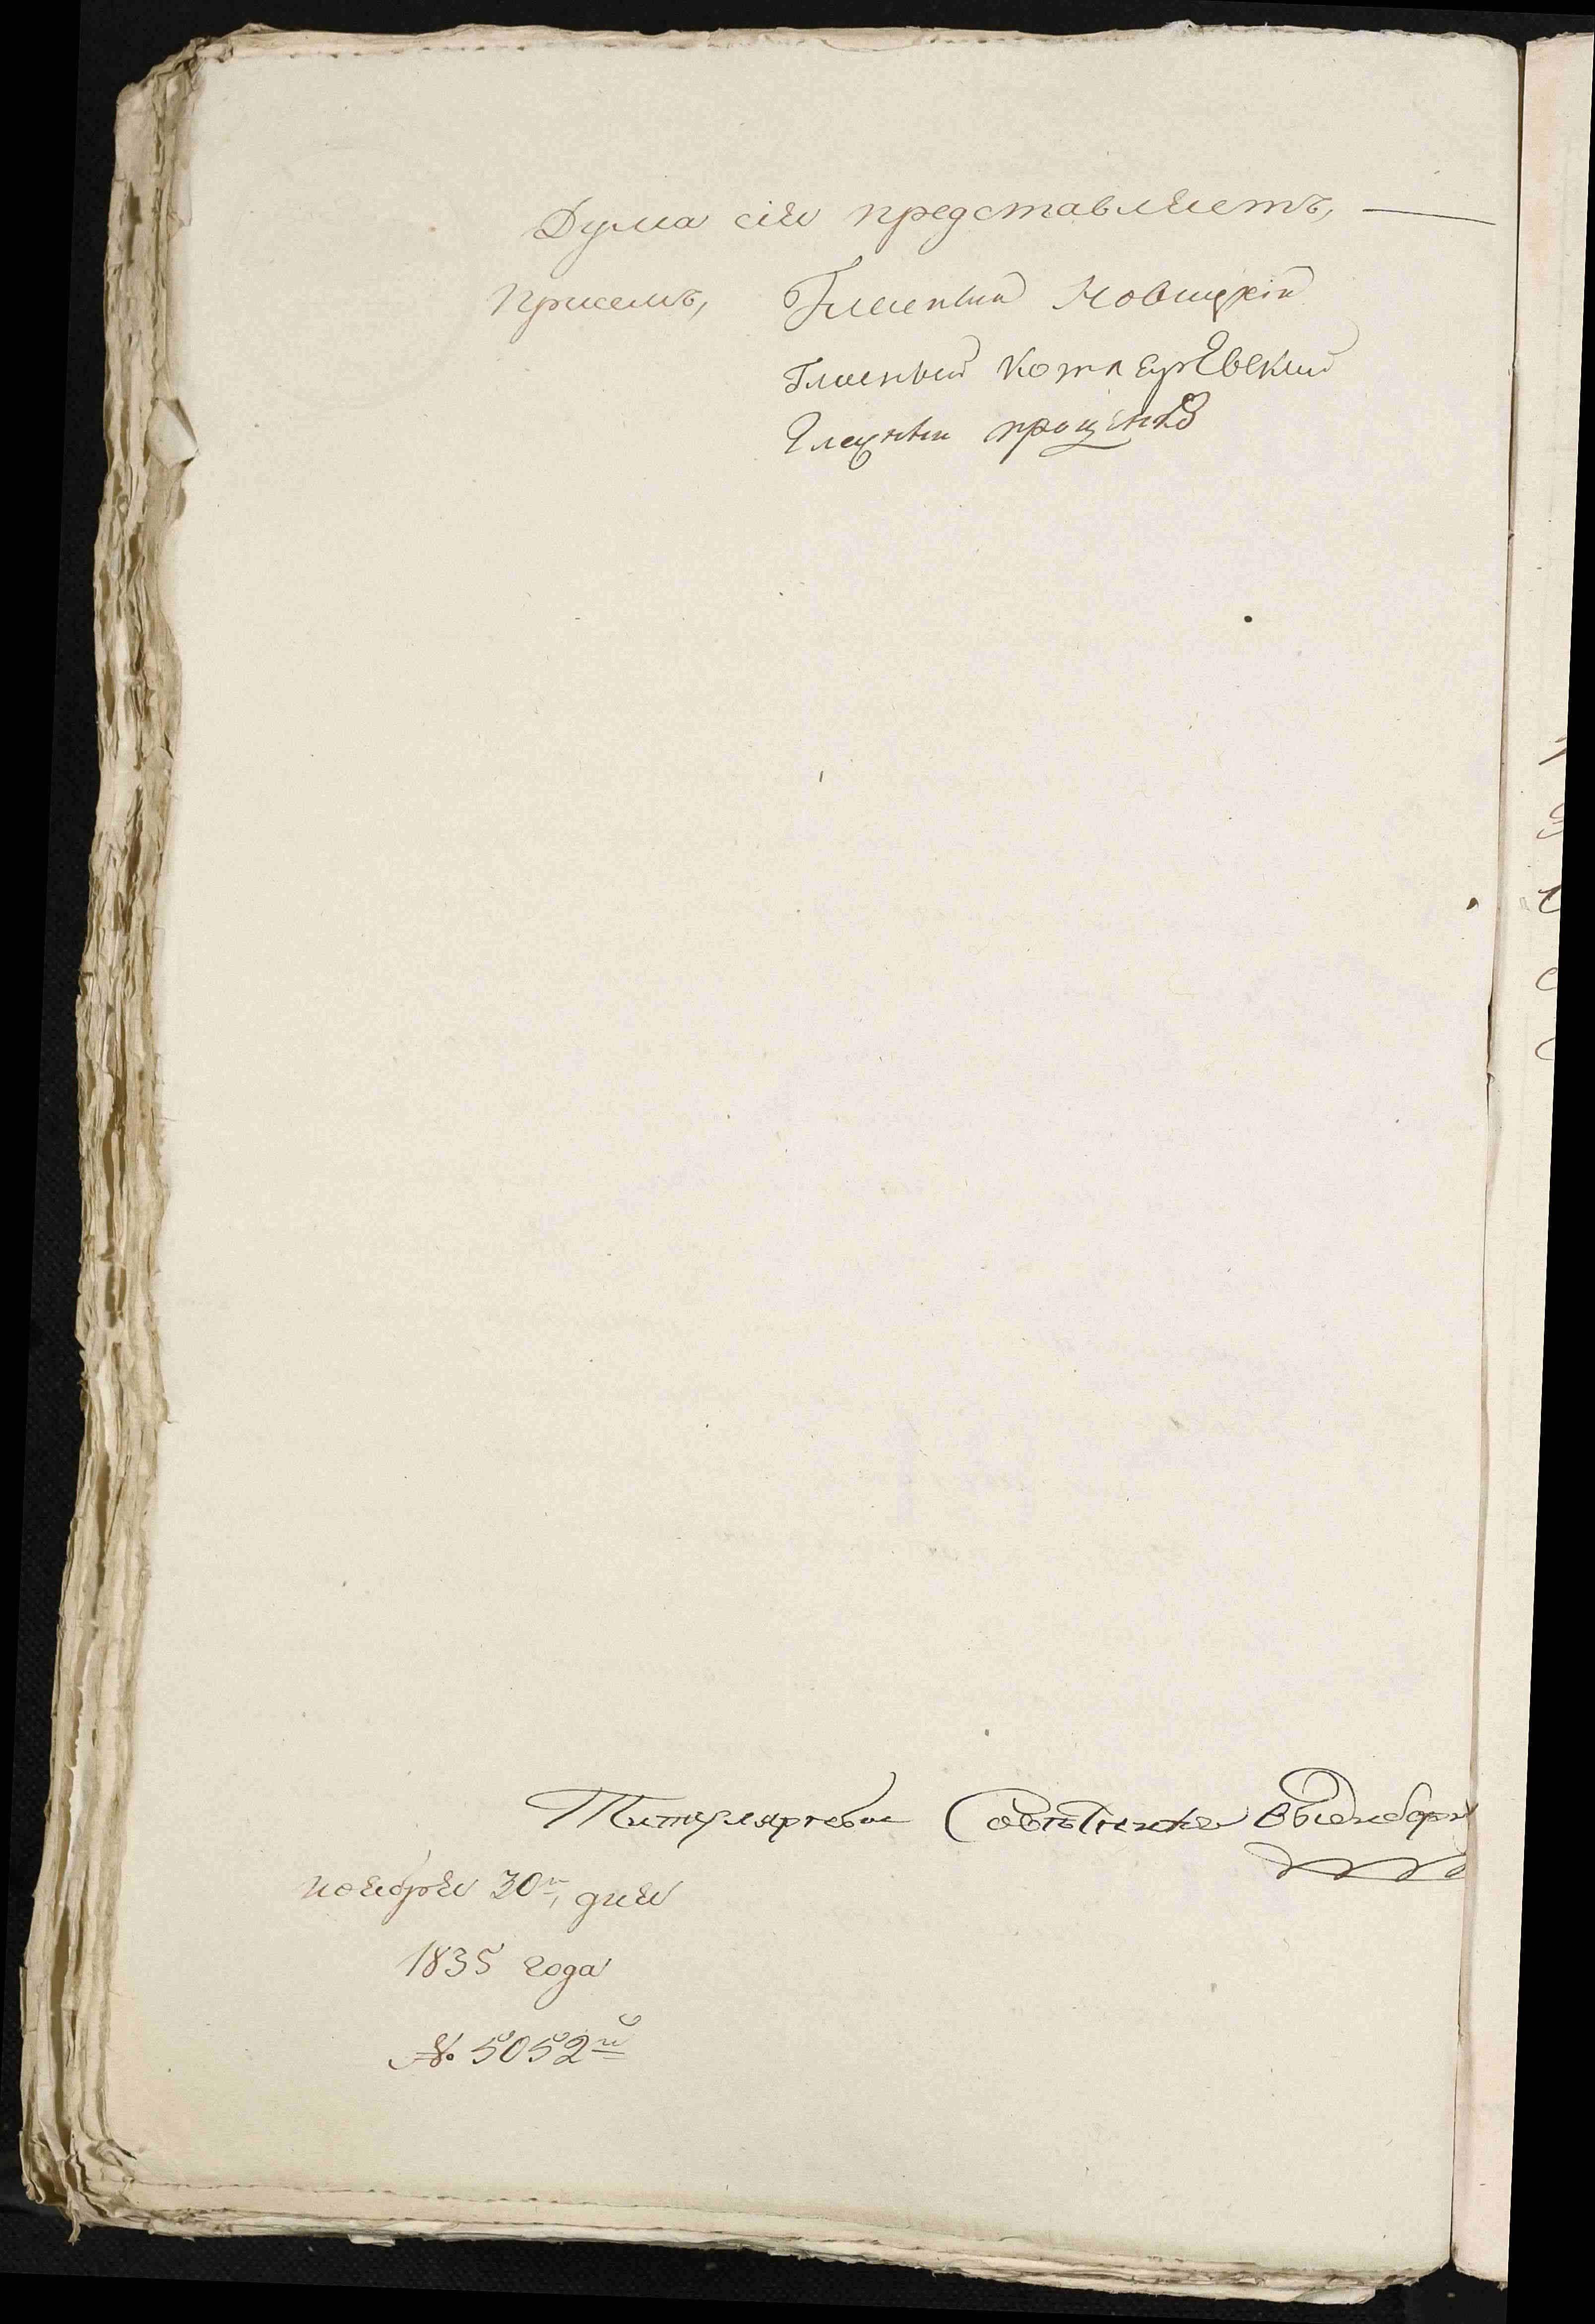 Дума сія представляетъ,
Гласный Новицкій
Гласный
Гласный проценко
Титулярный Совѣтникъ
ноября 30го, дня
1835 года
№ 5052й